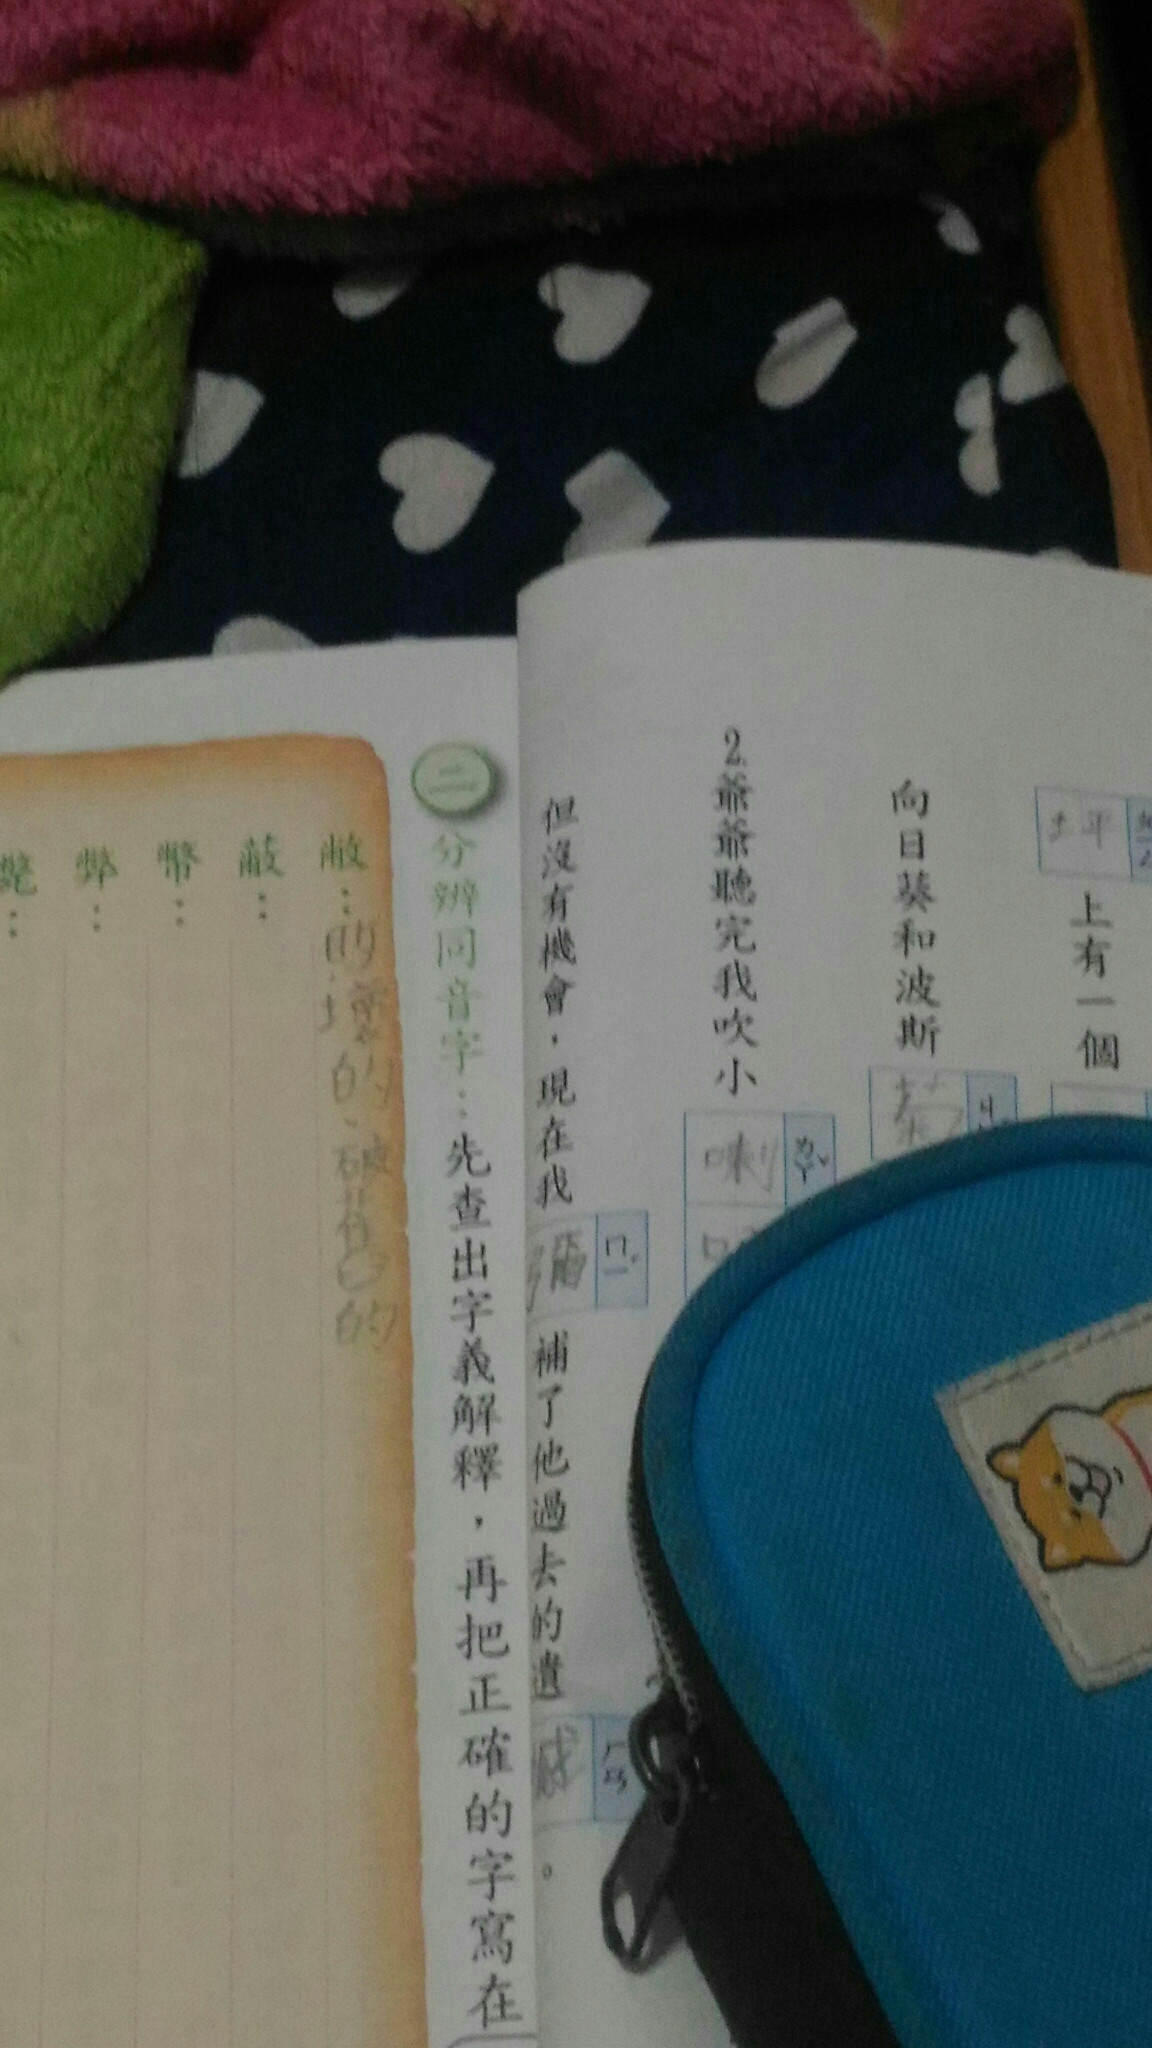 上有一個
向日葵和波斯
2.爺爺聽完我吹小喇
ㄌㄚˇ
但沒有機會，現在我彌補了他過去的遺憾。
ㄇㄧˊ
ㄏㄢˋ
二 分辨同音字：先查出字義解釋，再把正確的字寫在
敝：的壞的、破舊的
蔽：
幣：
弊：
斃：